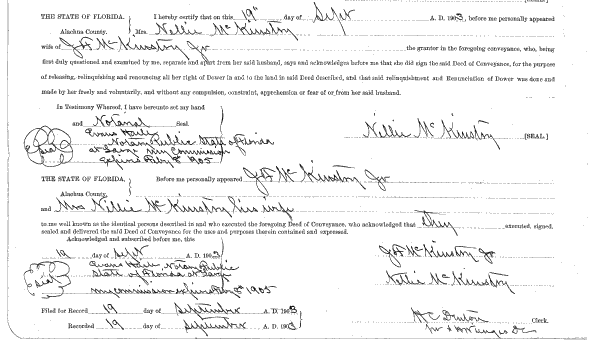 THE STATE OF FLORIDA. I hereby certify that on this 19" day of Sept A. D. 1903, before me personally appeared
Alachua County. Mrs. Nellie McKinstry
wife of J H McKinstry Jr the grantor in the foregoing conveyance, who, being
first duly questioned and examined by me, separate and apart from her said husband, says and acknowledges before me that she did sign the said Deed of Conveyance, for the purpose
of releasing, relinquishing and renouncing all her right of Dower in and to the land in said Deed described, and that said relinquishment and Renunciation of Dower was done and
made by her freely and voluntarily, and without any compulsion, constraint, apprehension or fear of or from her said husband.
In Testimony Whereof, I have hereunto set my hand
and Notarial Seal. Nellie McKinstry [SEAL]
Evans Haile
Seal Notary Public State of Florida
at Large My Commission
Expires Feby 8" 1905
THE STATE OF FLORIDA. Before me personally appeared J H McKinstry Jr
Alachua County.
and Mrs Nellie McKinstry his wife
to me well known as the identical persons described in and who executed the foregoing Deed of Conveyance, who acknowledged that they executed, signed,
sealed and delivered the said Deed of Conveyance for the uses and purposes therein contained and expressed.
Acknowledged and subscribed before me, this
19 day of Sept A. D. 1903 J H McKinstry Jr
Seal Evans Haile, Notary Public Nellie McKinstry
State of Florida at Large
my commission expires Feby 8" 1905
Filed for Record 19 day of September A. D. 1903
Recorded 19 day of September A. D. 1903 Clerk.